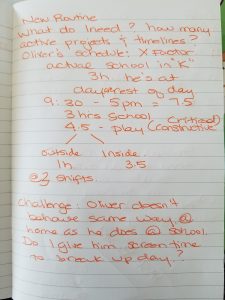 New Routine
What do I need? how many
active projects & timelines?
Oliver's schedule: X Factor
actual school in "K"
3h. he's at
day rest of day
9:30 - 5pm = 7.5
3 hrs School (critical)
4.5 - play (constructive)
outside Inside.
1h 3.5
@ 2 shifts.
Challenge: Oliver doesn't
behave same way @
home as he does @ school.
Do I give him screen time
to break up day?